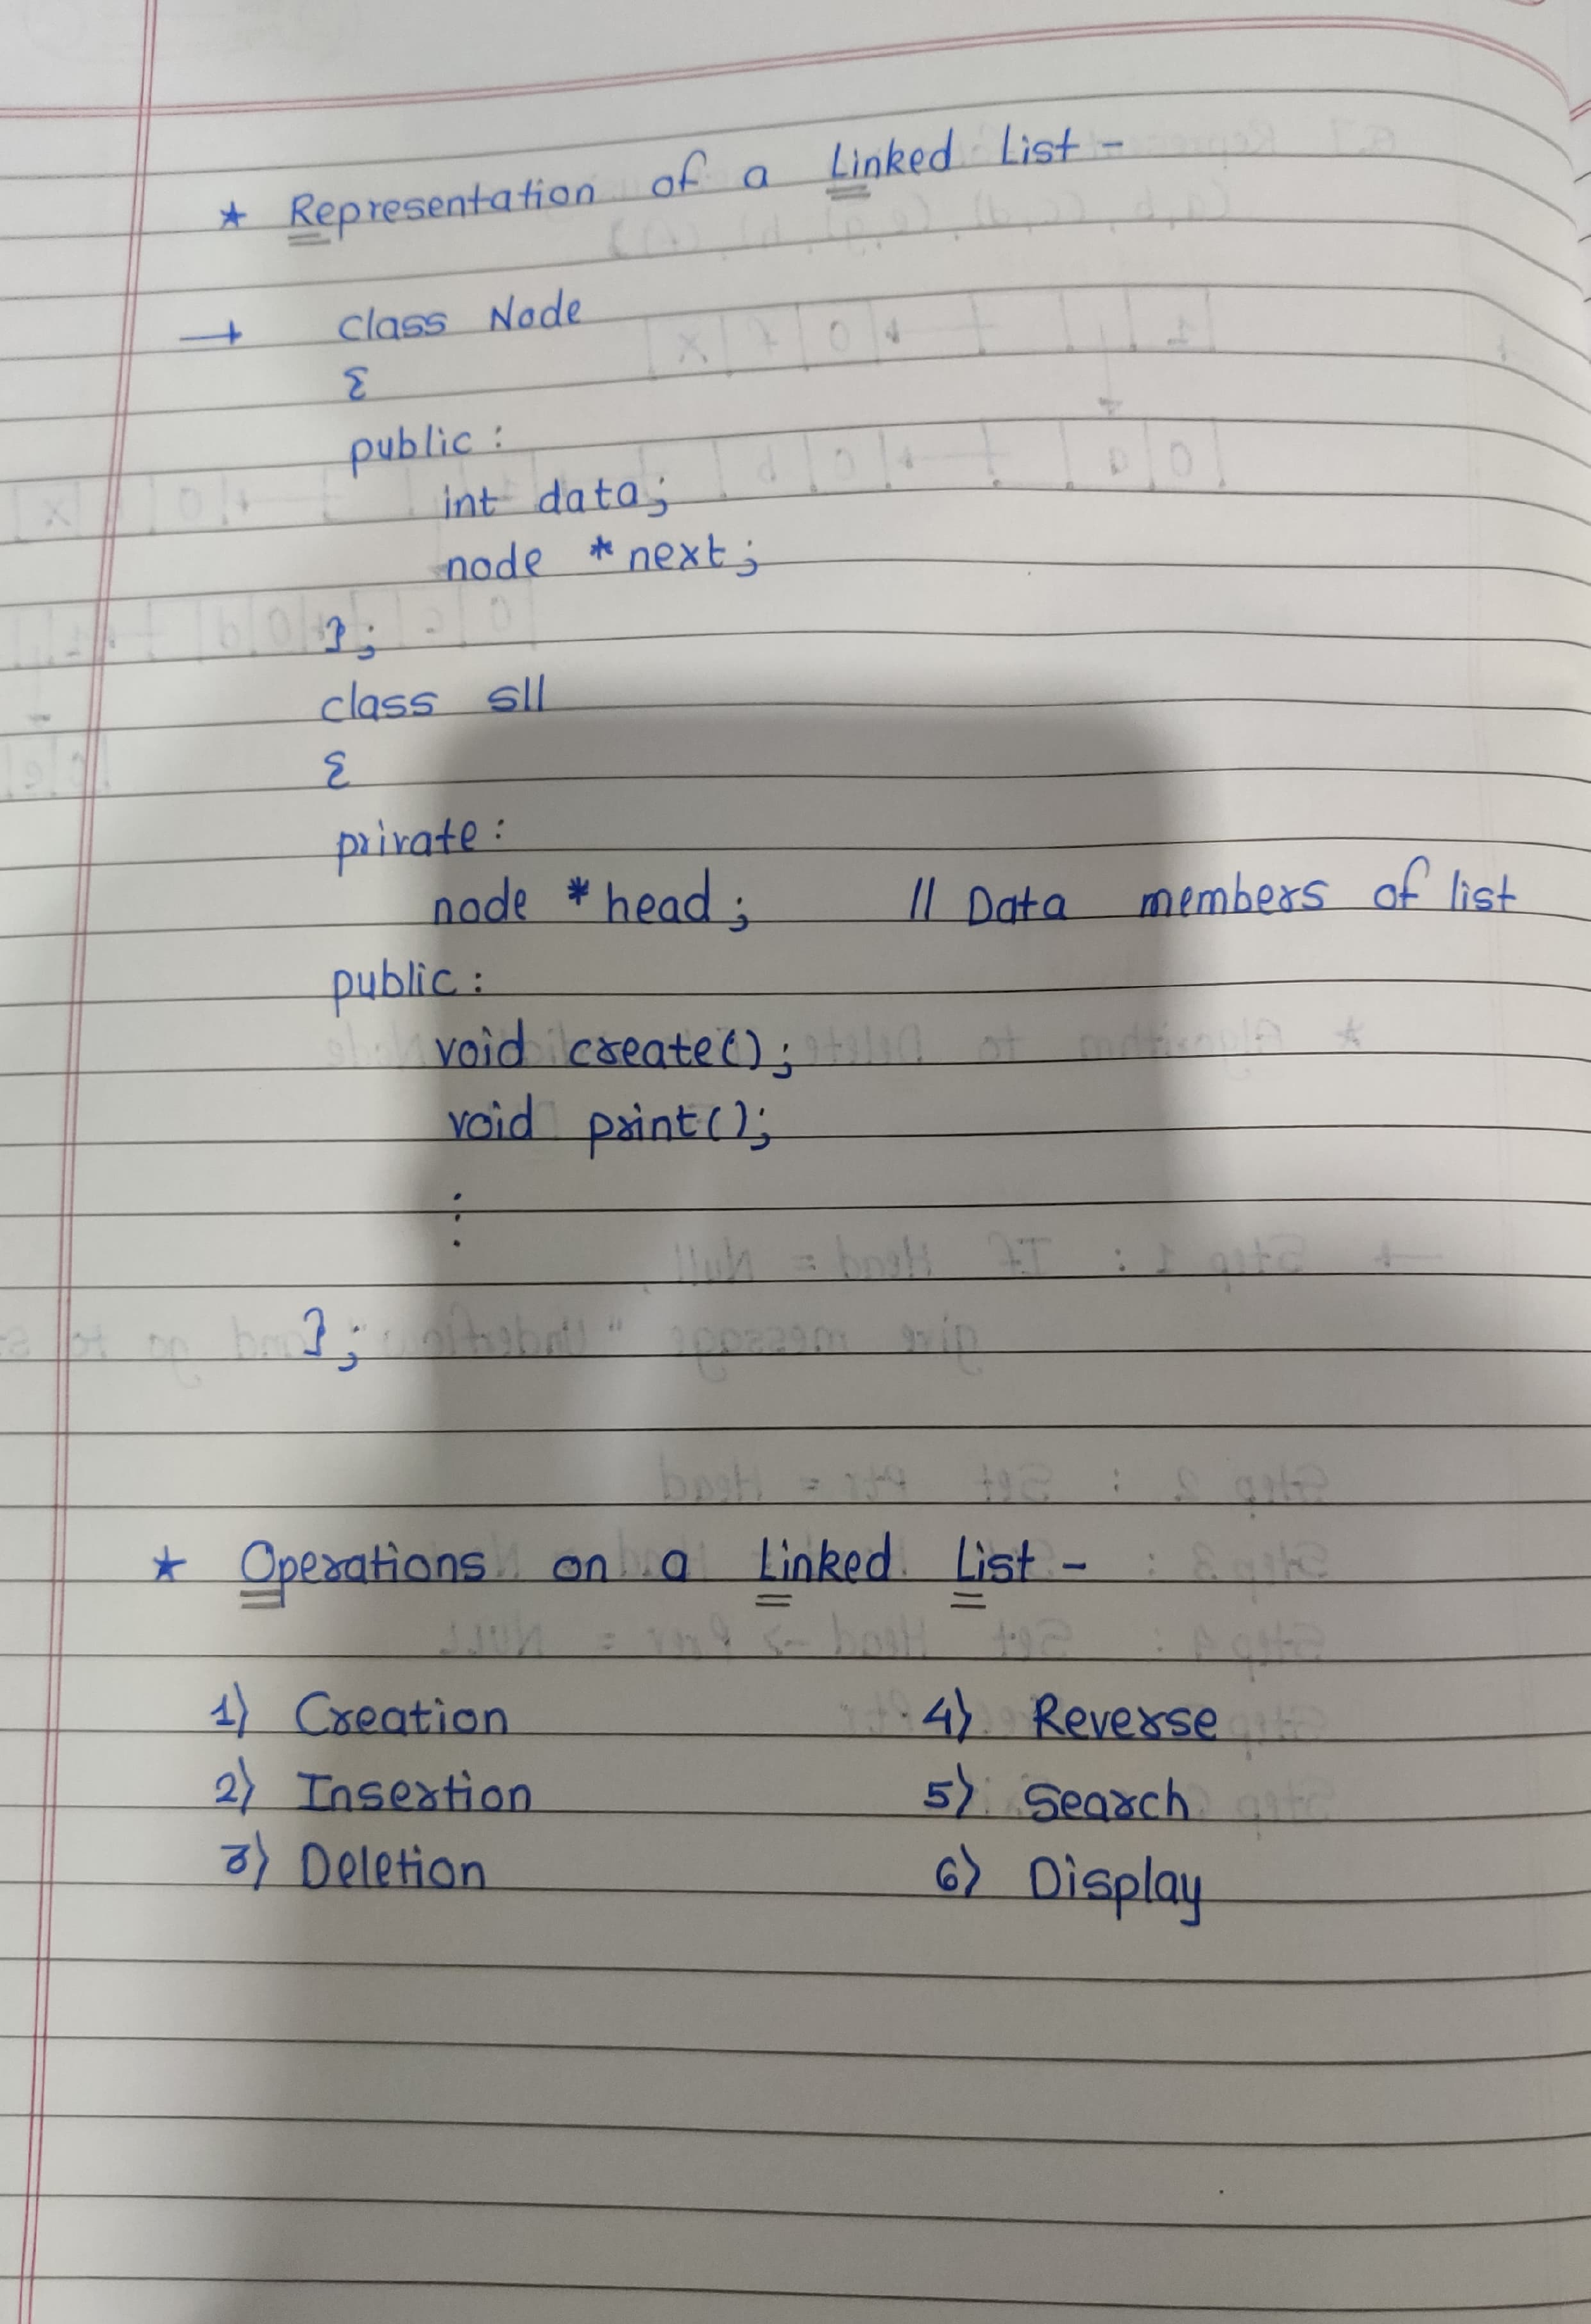 * Representation of a Linked List -
→ class Node
{
public :
int data;
node * next;
};
class sll
{
private :
node * head; // Data members of list
public :
void create();
void print();
⋮
};
* Operations on a Linked List -
1) Creation
2) Insertion
3) Deletion
4) Reverse
5) Search
6) Display